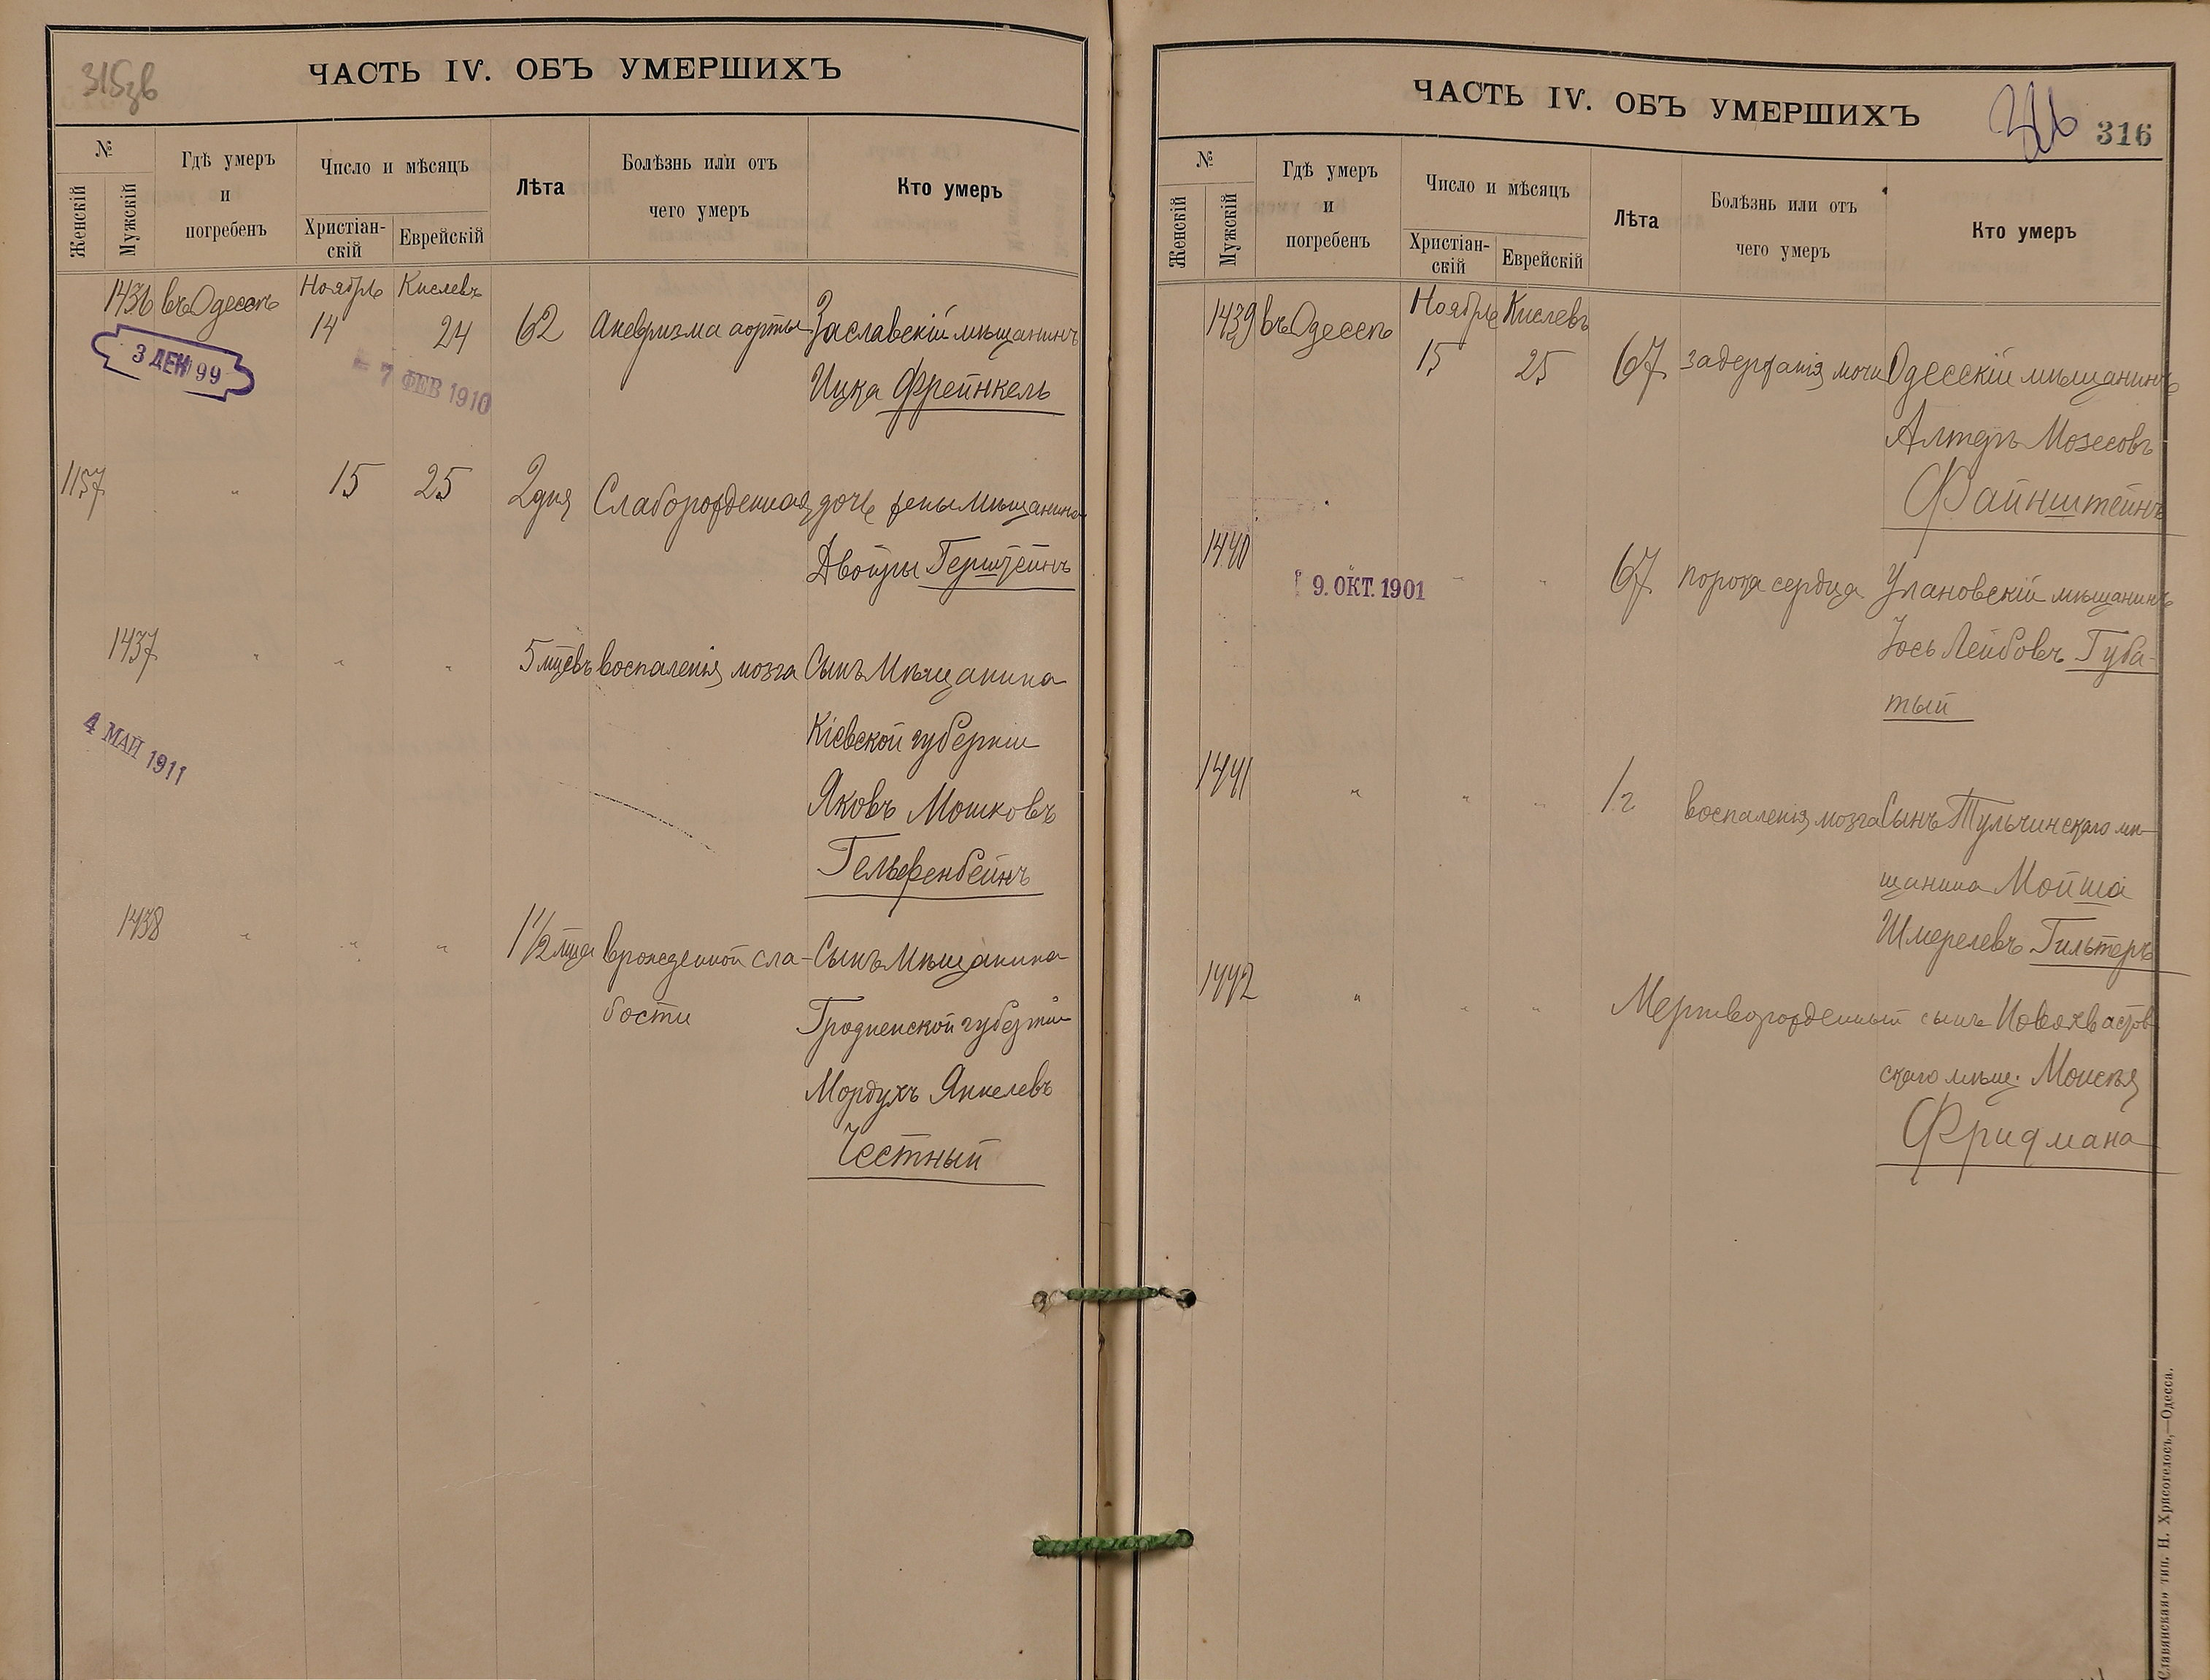 315зв
ЧАСТЬ IV. ОБЪ УМЕРШИХЪ
№
Женскій
Мужскій
Гдѣ умеръ
и
погребенъ
Число и мѣсяцъ
Христіан-
скій
Еврейскій
Лѣта
Болѣзнь или отъ
чего умеръ
Кто умеръ
Ноябрь Кислевъ
1436 въ Одессѣ 14 24 62 Аневризма аорты Заславскій мѣщанинъ
Ицка Френкель
3 ДЕК 99
7 ФЕВ 1910
1157 " 15 25 2 дня Слаборожденная дочь жены мѣщанина
Двойры Герштейнъ
1437 " " " 5 мцевъ воспаленія мозга Сынъ Мѣщанина
Кіевской губерніи
4 МАЙ 1911
Яковъ Мошковъ
Гельфенбейнъ
1438 " " " 1 1/2 мца врожденной сла- Сынъ Мѣщанина
бости Гродненской губерніи
Мордухъ Янкелевъ
Честный
ЧАСТЬ IV. ОБЪ УМЕРШИХЪ
316
316
№
Женскій
Мужскій
Гдѣ умеръ
и
погребенъ
Число и мѣсяцъ
Христіан-
скій
Еврейскій
Лѣта
Болѣзнь или отъ
чего умеръ
Кто умеръ
Ноябрь Кислевъ
1439 въ Одессѣ 15 25 67 задержанія мочи Одесскій мѣщанинъ
Алтеръ Мозесовъ
Файнштейнъ
1440 " " 67 порока сердца Улановскій мѣщанинъ
9. ОКТ. 1901
Іось Лейбовъ Губа-
тый
1441 " " " 1 г воспаленія мозга Сынъ Тульчинскаго мѣ-
щанина Мойша
Шмерелевъ Гильтеръ
1442 " " " Мертворожденный сынъ Новохвастов-
скаго мѣщ. Моисея
Фридмана
Славянская» тип. Н. Хрисогелосъ,—Одесса.